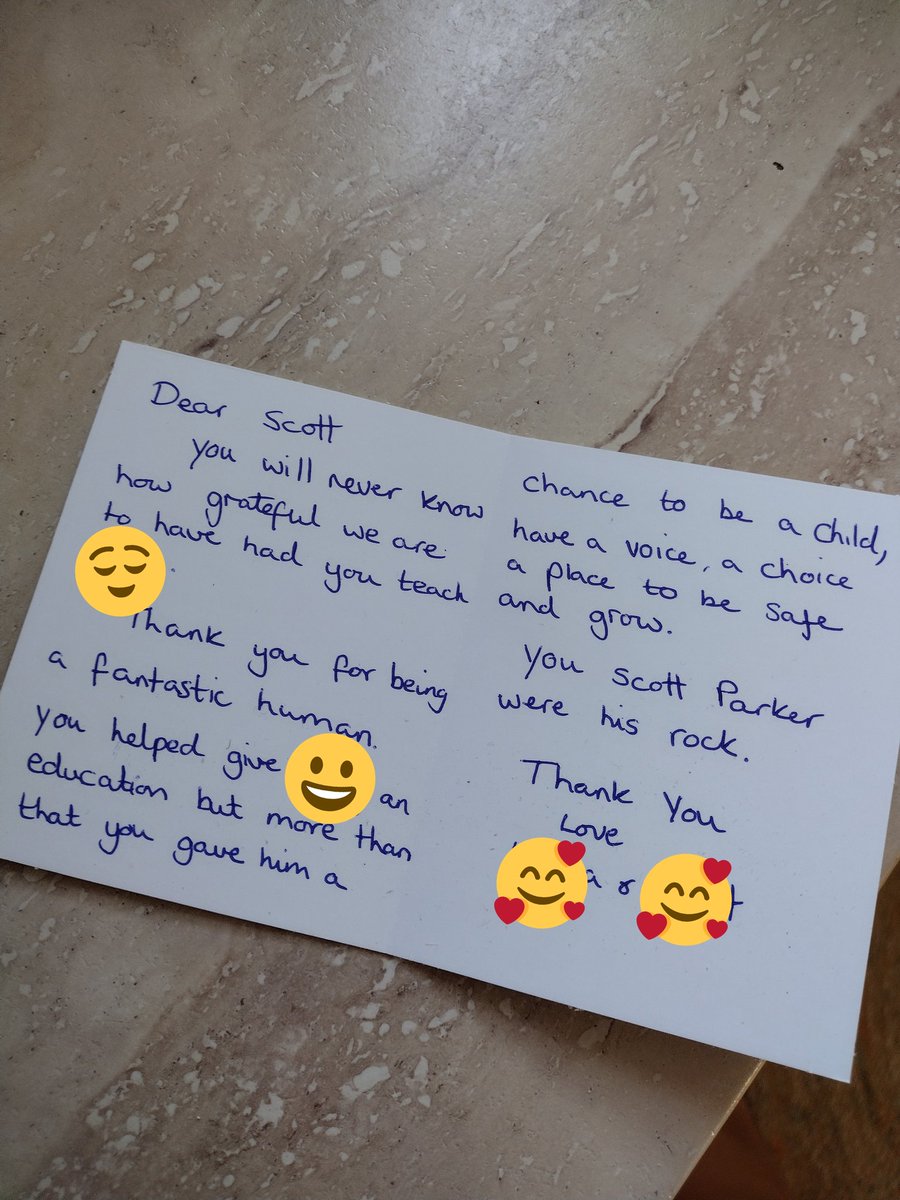 Dear Scott
you will never know
how grateful we are
to have had you teach
.
Thank you for being
a fantastic human.
you helped give an
education but more than
that you gave him a
chance to be a child,
have a voice, a choice
a place to be safe
and grow.
You Scott Parker
were his rock.
Thank You
Love